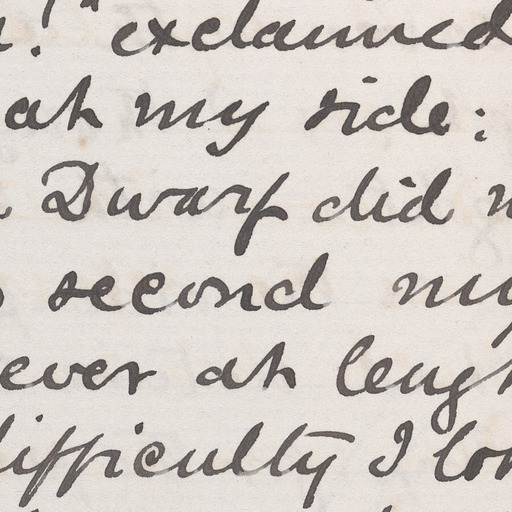 !" exclaimed
at my side:
Dwarf did
second my
ever at leng
difficulty I lo